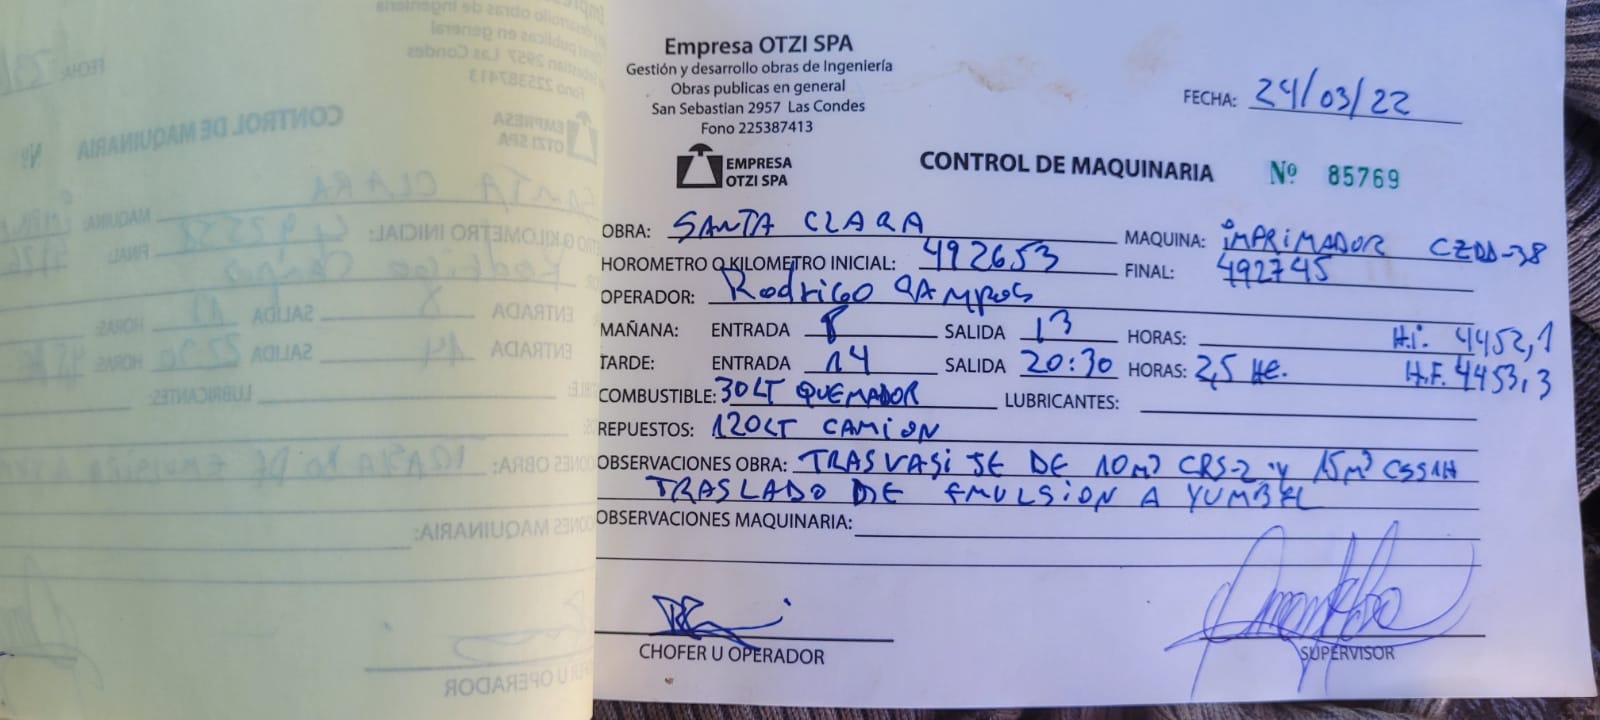 Empresa OTZI SPA
Gestión y desarrollo obras de Ingeniería
Obras publicas en general
San Sebastian 2957 Las Condes
Fono 225387413
FECHA: 24/03/22
EMPRESA
OTZI SPA
CONTROL DE MAQUINARIA Nº 85769
OBRA: SANTA CLARA MAQUINA: IMPRIMADOR CZDD-38
HOROMETRO O KILOMETRO INICIAL: 492653 FINAL: 492745
OPERADOR: Rodrigo CAMPOS
MAÑANA: ENTRADA 8 SALIDA 13 HORAS: H.i. 4452,1
TARDE: ENTRADA 14 SALIDA 20:30 HORAS: 2,5 HE. H.F. 4453,3
COMBUSTIBLE: 30LT QUEMADOR LUBRICANTES:
REPUESTOS: 120LT CAMION
OBSERVACIONES OBRA: TRASVASIJE DE 10m3 CRS-2 y 15m3 CSS1H
TRASLADO DE EMULSION A YUMBEL
OBSERVACIONES MAQUINARIA:
CHOFER U OPERADOR
SUPERVISOR